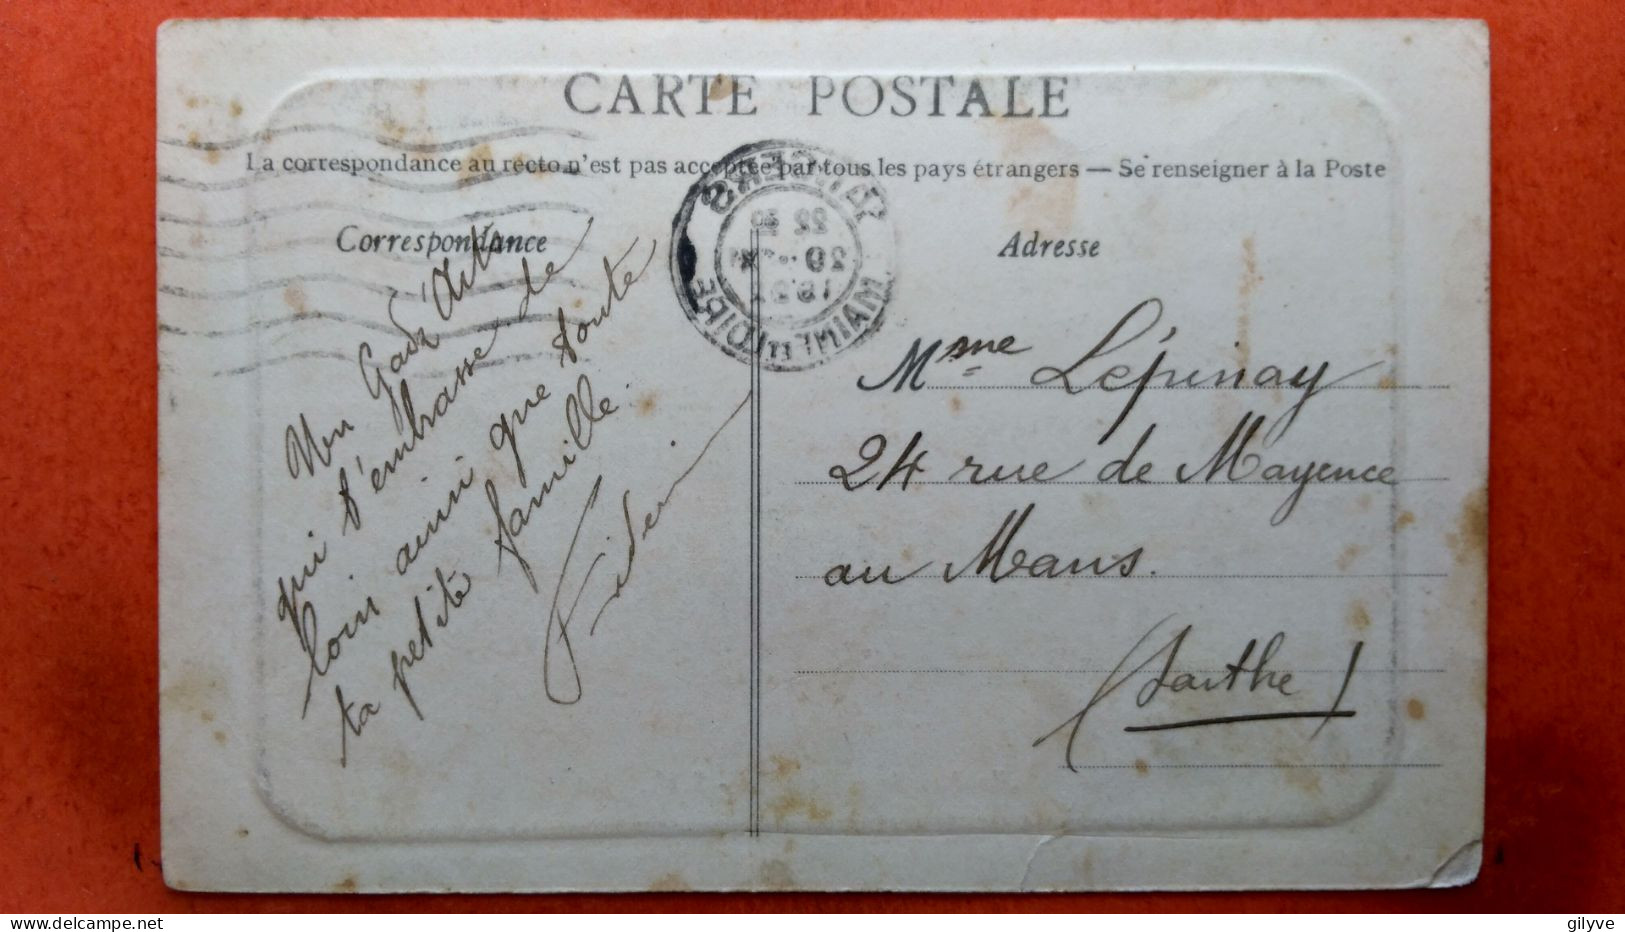 CARTE POSTALE
La correspondance au recto n'est pas acceptée par tous les pays étrangers — Se renseigner à la Poste
Correspondance
Adresse
ANGERS
MAINE ET LOIRE
Mon
qui t'embrasse de
loin ainsi que toute
ta petite famille.
Mme Lépinay
24 rue de Mayence
au Mans.
(Sarthe)
gilyve
delcampe.net